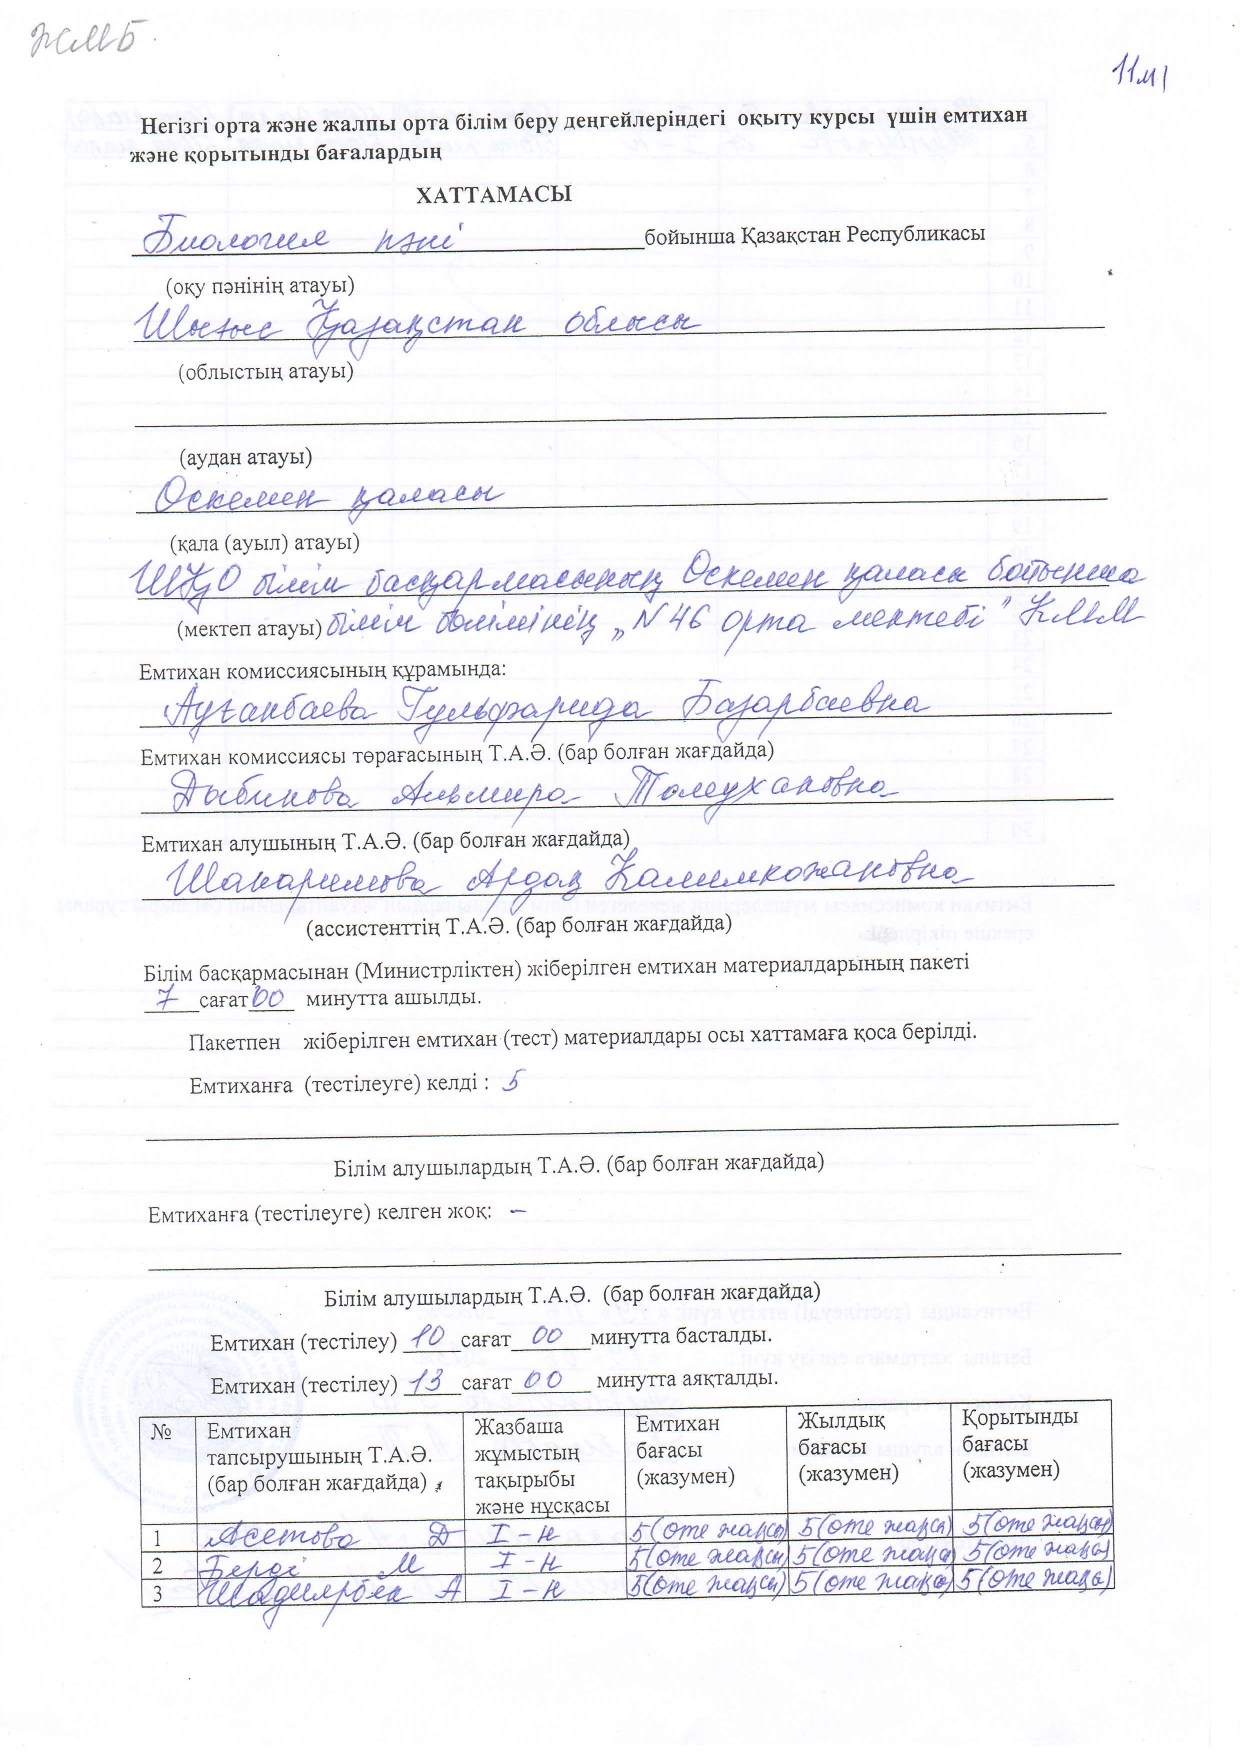 ЖМБ.
11м1
Негізгі орта және жалпы орта білім беру деңгейлеріндегі оқыту курсы үшін емтихан
және қорытынды бағалардың
ХАТТАМАСЫ
Биология пәні бойынша Қазақстан Республикасы
(оқу пәнінің атауы)
Шығыс Қазақстан облысы
(облыстың атауы)
(аудан атауы)
Өскемен қаласы
(қала (ауыл) атауы)
ШҚО білім басқармасының Өскемен қаласы бойынша
(мектеп атауы) білім бөлімінің „N 46 орта мектебі" КММ
Емтихан комиссиясының құрамында:
Ауғанбаева Гульфарида Базарбаевна
Емтихан комиссиясы төрағасының Т.А.Ә. (бар болған жағдайда)
Дабинова Альмира Толеухановна
Емтихан алушының Т.А.Ә. (бар болған жағдайда)
Шакаримова Ардақ Калимкожановна
(ассистенттің Т.А.Ә. (бар болған жағдайда)
Білім басқармасынан (Министрліктен) жіберілген емтихан материалдарының пакеті
7 сағат 00 минутта ашылды.
Пакетпен жіберілген емтихан (тест) материалдары осы хаттамаға қоса берілді.
Емтиханға (тестілеуге) келді : 5
Білім алушылардың Т.А.Ә. (бар болған жағдайда)
Емтиханға (тестілеуге) келген жоқ: –
Білім алушылардың Т.А.Ә. (бар болған жағдайда)
Емтихан (тестілеу) 10 сағат 00 минутта басталды.
Емтихан (тестілеу) 13 сағат 00 минутта аяқталды.
№ Емтихан тапсырушының Т.А.Ә. (бар болған жағдайда) Жазбаша жұмыстың тақырыбы және нұсқасы Емтихан бағасы (жазумен) Жылдық бағасы (жазумен) Қорытынды бағасы (жазумен)
1 Асетова Д I - н 5 (өте жақсы) 5 (өте жақсы) 5 (өте жақсы)
2 Берді М I - н 5 (өте жақсы) 5 (өте жақсы) 5 (өте жақсы)
3 А I - н 5 (өте жақсы) 5 (өте жақсы) 5 (өте жақсы)